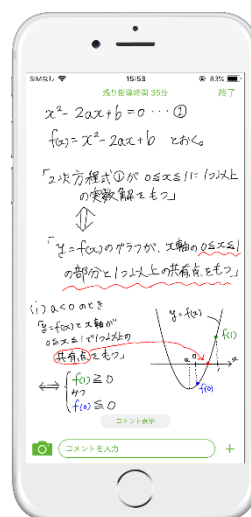 SIMなし
15:53
83%
残り指導時間 35分
終了
x²-2ax+b=0 … ①
f(x)=x²-2ax+b とおく。
「2次方程式①が 0≦x≦1に1つ以上
の実数解をもつ」
⇕
「y=f(x)のグラフが、x軸の0≦x≦1
の部分と1つ以上の共有点をもつ」
(i) a<0のとき
「y=f(x)とx軸が
0≦x≦1で1つ以上の
共有点をもつ」
⇔ { f(1)≧0
かつ
f(0)≦0
y=f(x)
f(1)
a
0
1
x
f(0)
コメント表示
コメントを入力
+